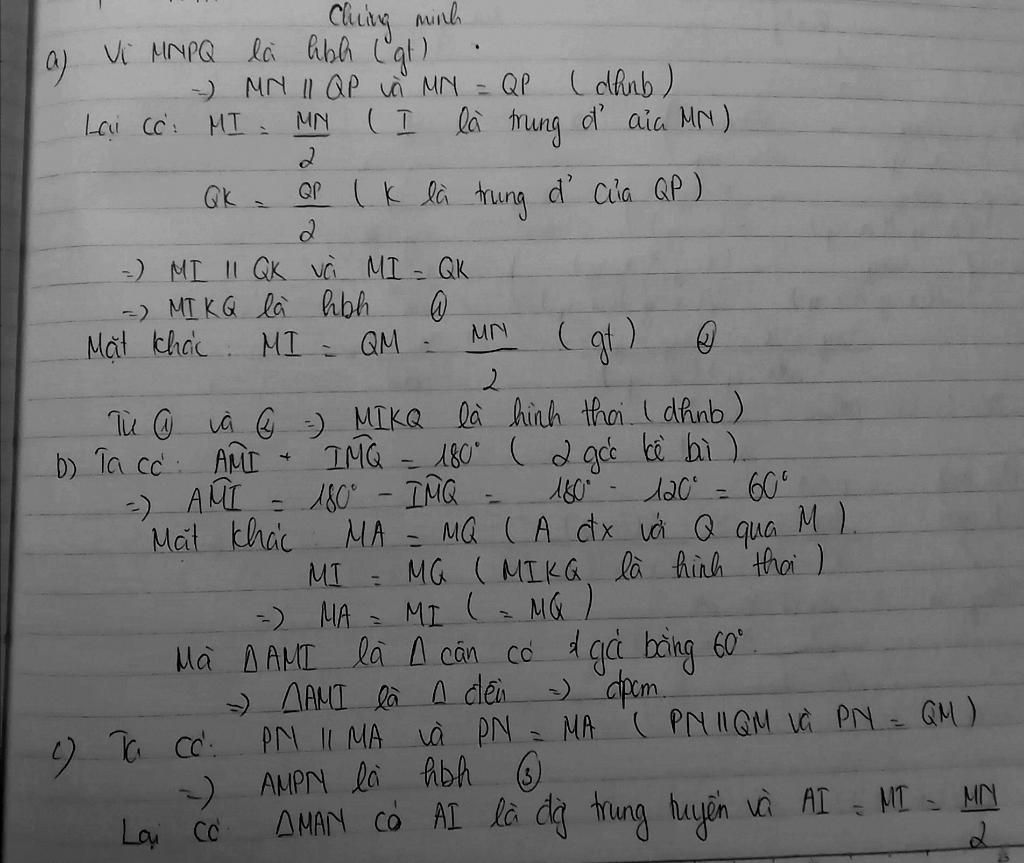 Chứng minh
a) Vì MNPQ là hbh (gt)
=> MN // QP và MN = QP (dhnb)
Lại có: MI = MN/2 (I là trung đ' của MN)
QK = QP/2 (K là trung đ' của QP)
=> MI // QK và MI = QK
=> MIKQ là hbh ①
Mặt khác: MI = QM = MN/2 (gt) ②
Từ ① và ② => MIKQ là hình thoi (dhnb)
b) Ta có: AMI + IMQ = 180° (2 góc kề bù)
=> AMI = 180° - IMQ = 180° - 120° = 60°
Mặt khác MA = MQ (A đx với Q qua M).
MI = MQ (MIKQ là hình thoi)
=> MA = MI (= MQ)
Mà ΔAMI là Δ cân có 1 góc bằng 60°.
=> ΔAMI là Δ đều => đpcm.
c) Ta có: PN // MA và PN = MA (PN // QM và PN = QM)
=> AMPN là hbh ③
Lại có ΔMAN có AI là đg trung tuyến và AI = MI = MN/2